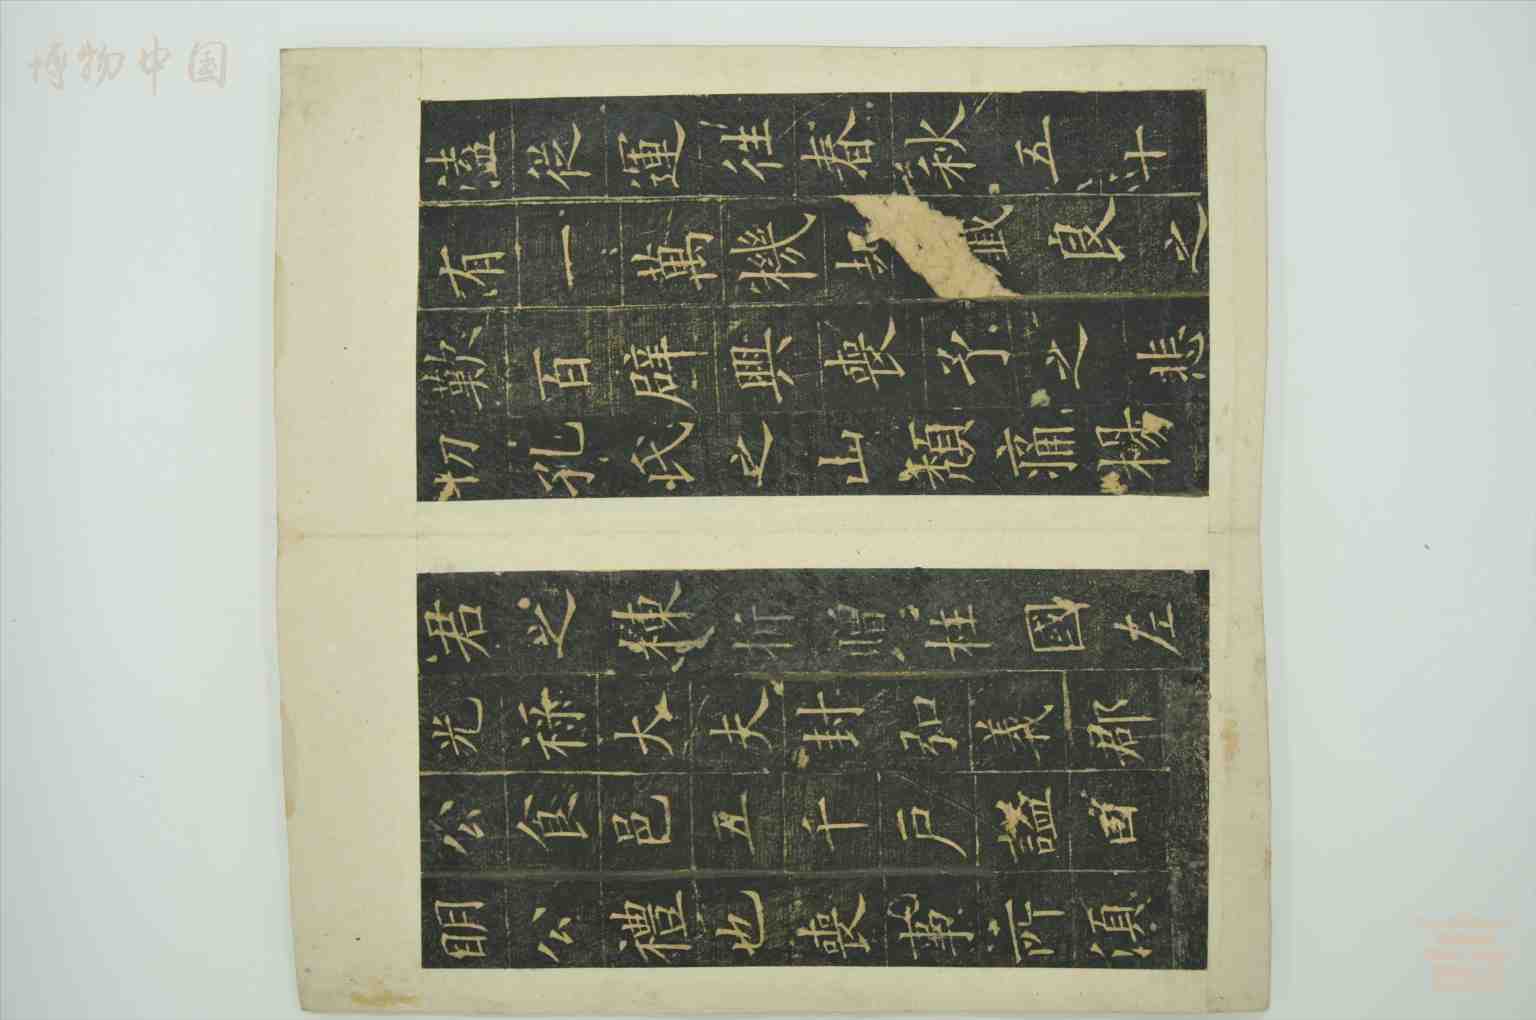 博物中国
溘從運往春秋五十
有一萬機起殲良之
歎百辟興喪予之悲
切孔氏之山頹痛楊
君之棟折贈柱國左
光祿大夫封弘義郡
公食邑五千戶諡曰
明公禮也喪事所須